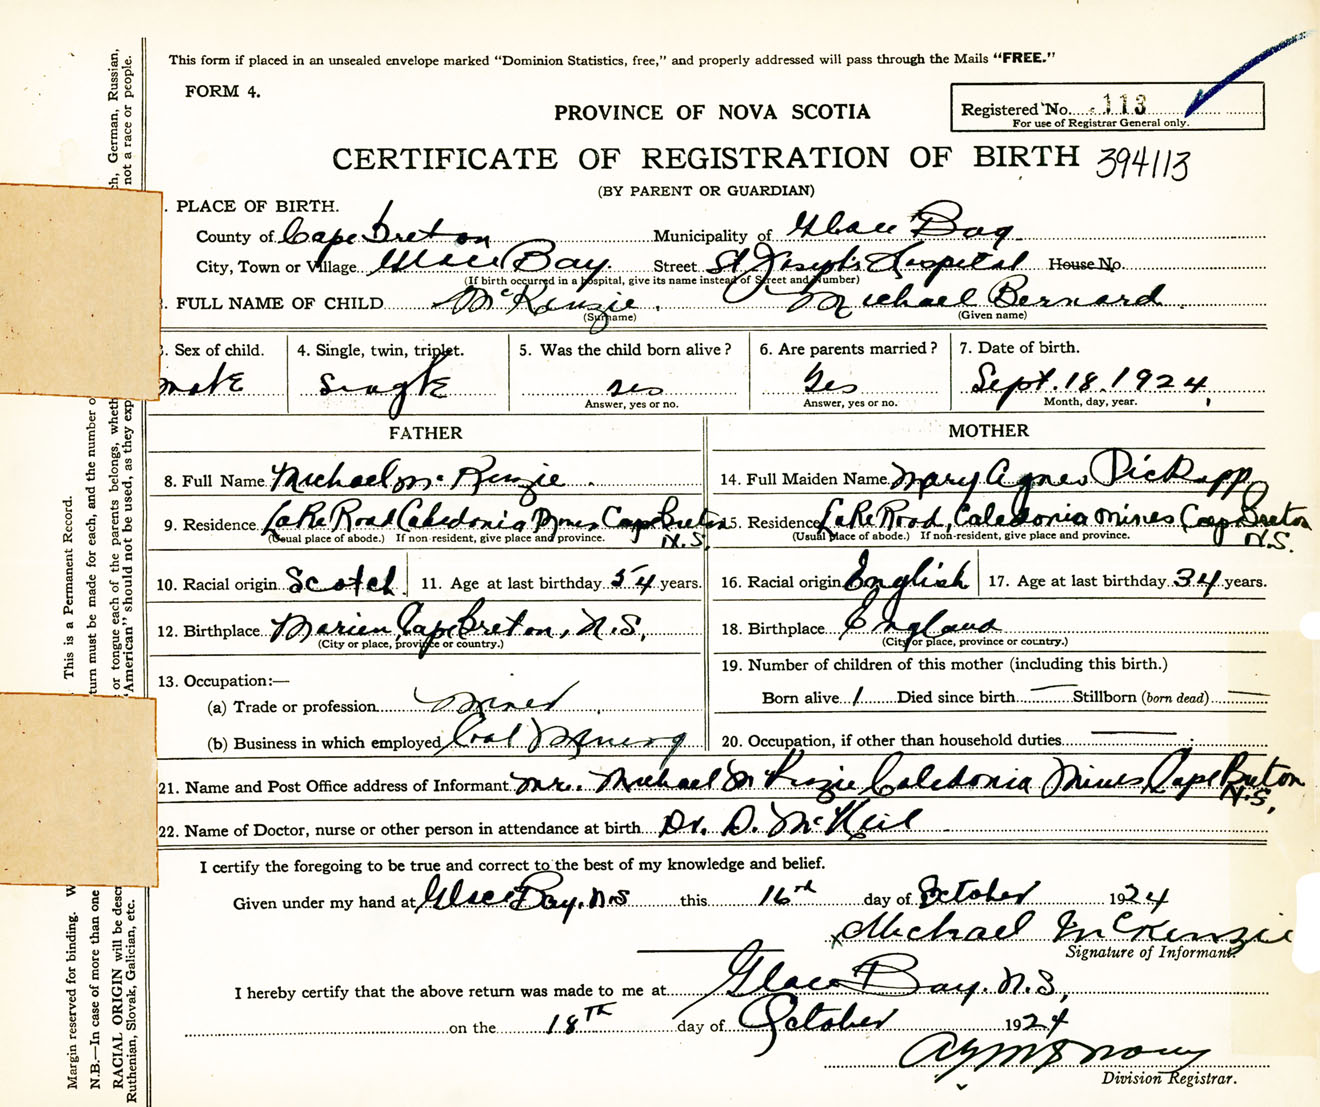 This form if placed in an unsealed envelope marked "Dominion Statistics, free," and properly addressed will pass through the Mails "FREE."
FORM 4.
PROVINCE OF NOVA SCOTIA
Registered No. 113
For use of Registrar General only.
CERTIFICATE OF REGISTRATION OF BIRTH 394113
(BY PARENT OR GUARDIAN)
. PLACE OF BIRTH.
County of Cape Breton Municipality of Glace Bay
City, Town or Village Glace Bay Street St Joseph's Hospital House No.
(If birth occurred in a hospital, give its name instead of Street and Number)
. FULL NAME OF CHILD McKenzie Michael Bernard
(Surname) (Given name)
. Sex of child. 4. Single, twin, triplet. 5. Was the child born alive? 6. Are parents married? 7. Date of birth.
male single yes Yes Sept. 18. 1924
Answer, yes or no. Answer, yes or no. Month, day, year.
FATHER MOTHER
8. Full Name Michael Mc Kenzie 14. Full Maiden Name Mary Agnes Pickupp
9. Residence Lake Road Caledonia Mines Cape Breton N.S. 15. Residence Lake Road, Caledonia Mines Cape Breton N.S.
(Usual place of abode.) If non-resident, give place and province. (Usual place of abode.) If non-resident, give place and province.
10. Racial origin Scotch 11. Age at last birthday 54 years. 16. Racial origin English 17. Age at last birthday 34 years.
12. Birthplace Marion, Cape Breton, N.S. 18. Birthplace England
(City or place, province or country.) (City or place, province or country.)
13. Occupation:— 19. Number of children of this mother (including this birth.)
(a) Trade or profession miner Born alive 1 Died since birth — Stillborn (born dead) —
(b) Business in which employed Coal Mining 20. Occupation, if other than household duties —
21. Name and Post Office address of Informant Mr. Michael McKenzie Caledonia Mines Cape Breton N.S.
22. Name of Doctor, nurse or other person in attendance at birth Dr. D. McNeil
I certify the foregoing to be true and correct to the best of my knowledge and belief.
Given under my hand at Glace Bay. N.S this 16th day of October 1924
Michael McKenzie
Signature of Informant.
I hereby certify that the above return was made to me at Glace Bay. N.S,
on the 18TH day of October 1924
Division Registrar.
Margin reserved for binding. W This is a Permanent Record.
N.B.—In case of more than one turn must be made for each, and the number o
RACIAL ORIGIN will be descr or tongue each of the parents belongs, wheth ch, German, Russian,
Ruthenian, Slovak, Galician, etc. "American" should not be used, as they exp not a race or people.